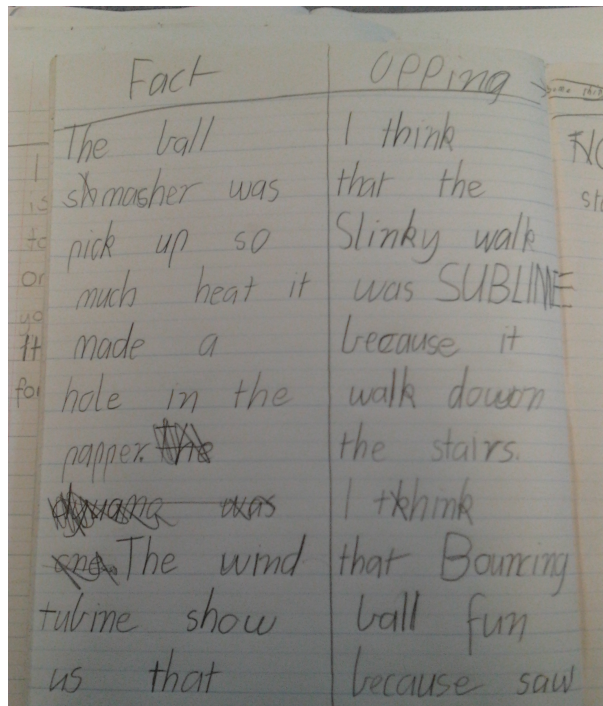 Fact
The ball
smasher was
pick up so
much heat it
made a
hole in the
papper. The
was
The wind
tubine show
us that
Opping
I think
that the
Slinky walk
was SUBLIME
because it
walk dowon
the stairs.
I thhink
that Bouncing
ball fun
because saw